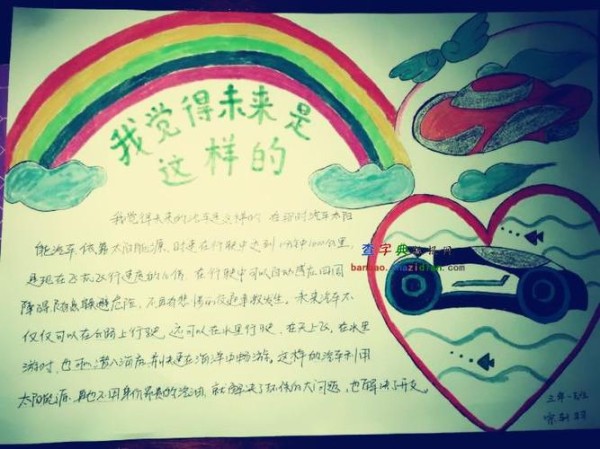 我觉得未来是
这样的
我觉得未来的汽车是这样的，在那时汽车太阳
能汽车，依靠太阳能源，时速在行驶中达到1分钟1000公里，
是现在飞机飞行速度的 倍，在行驶中可以自动 四周
障碍 危险，不再有 的交通事故发生。未来汽车不
仅仅可以在公路上行驶，还可以在水里行驶，在天上飞，在水里
游时，也可潜入海底 快速在海洋 畅游。这样的汽车利用
太阳能源，再也不用 昂贵的汽油，就解决了环保的大问题，也解决了开支。
查字典手抄报网
banbao.chazidian.com
三年一班